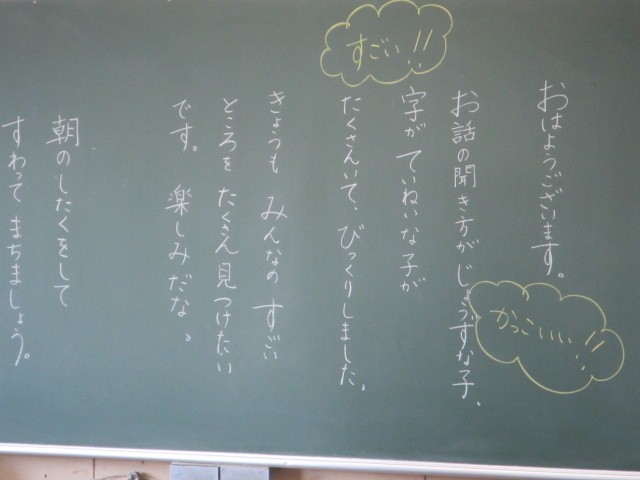 おはようございます。
お話の聞き方がじょうずな子、
字が ていねいな子が
たくさんいて、びっくりしました。
きょうも みんなの すごい
ところを たくさん見つけたい
です。 楽しみだな。
朝のしたくをして
すわって まちましょう。
すごい!!
かっこいいい!!